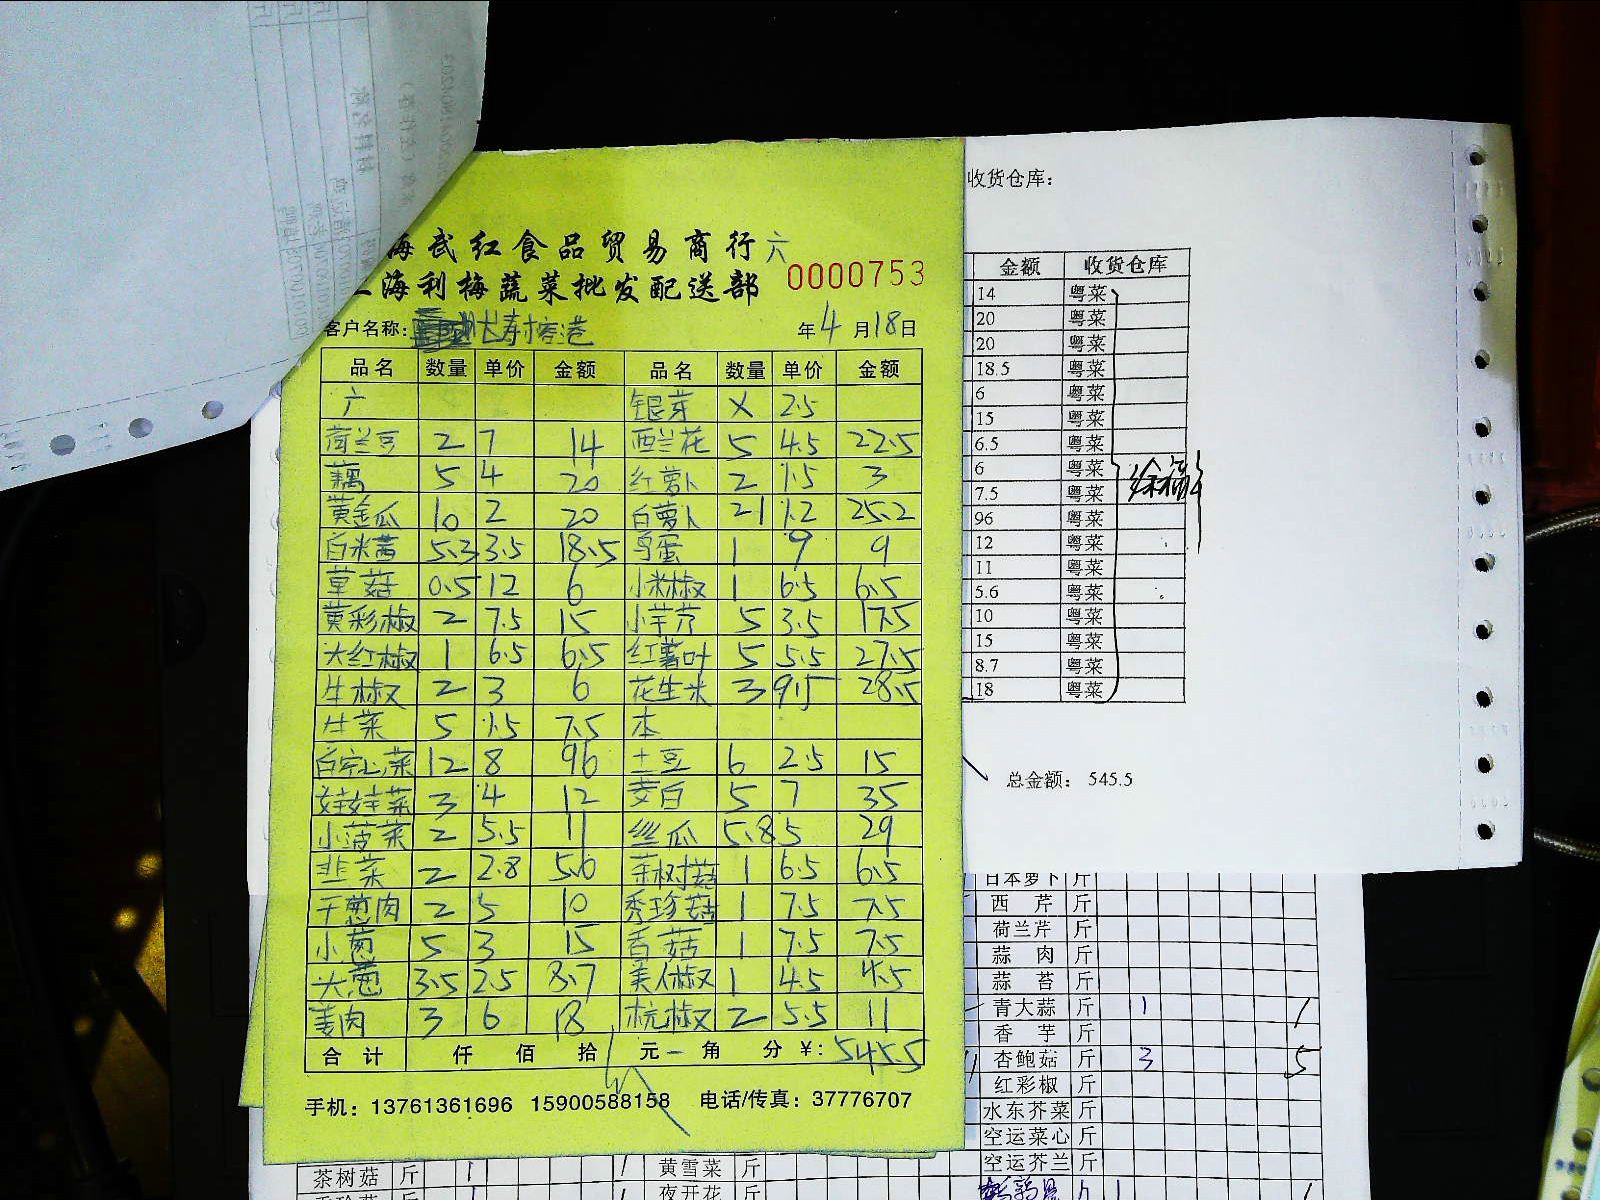 海武红食品贸易商行六
海利梅蔬菜批发配送部 0000753
客户名称: 长寿榕港 年4月18日
品名 数量 单价 金额 品名 数量 单价 金额
广 银芽 X 2.5
荷兰豆 2 7 14 西兰花 5 4.5 22.5
藕 5 4 20 红萝卜 2 1.5 3
黄金瓜 10 2 20 白萝卜 21 1.2 25.2
白米茜 5.3 3.5 18.5 鸟蛋 1 9 9
草菇 0.5 12 6 小米椒 1 6.5 6.5
黄彩椒 2 7.5 15 小芋艿 5 3.5 17.5
大红椒 1 6.5 6.5 红薯叶 5 5.5 27.5
牛椒 2 3 6 花生米 3 9.5 28.5
生菜 5 1.5 7.5 本
白空心菜 12 8 96 土豆 6 2.5 15
娃娃菜 3 4 12 茭白 5 7 35
小菠菜 2 5.5 11 丝瓜 5.8 5 29
韭菜 2 2.8 5.6 茶树菇 1 6.5 6.5
干葱肉 2 5 10 秀珍菇 1 7.5 7.5
小葱 5 3 15 香菇 1 7.5 7.5
大葱 3.5 2.5 8.7 美人椒 1 4.5 4.5
姜肉 3 6 18 杭椒 2 5.5 11
合计 仟 佰 拾 元 角 分 ¥: 545.5
手机: 13761361696 15900588158 电话/传真: 37776707
收货仓库:
金额 收货仓库
14 粤菜
20 粤菜
20 粤菜
18.5 粤菜
6 粤菜
15 粤菜
6.5 粤菜
6 粤菜
7.5 粤菜
96 粤菜
12 粤菜
11 粤菜
5.6 粤菜
10 粤菜
15 粤菜
8.7 粤菜
18 粤菜
总金额: 545.5
日本萝卜 斤
西芹 斤
荷兰芹 斤
蒜肉 斤
蒜苔 斤
青大蒜 斤 1 1
香芋 斤
杏鲍菇 斤 3 5
红彩椒 斤
水东芥菜 斤
空运菜心 斤
空运芥兰 斤
茶树菇 斤 1 1 黄雪菜 斤
夜开花 斤